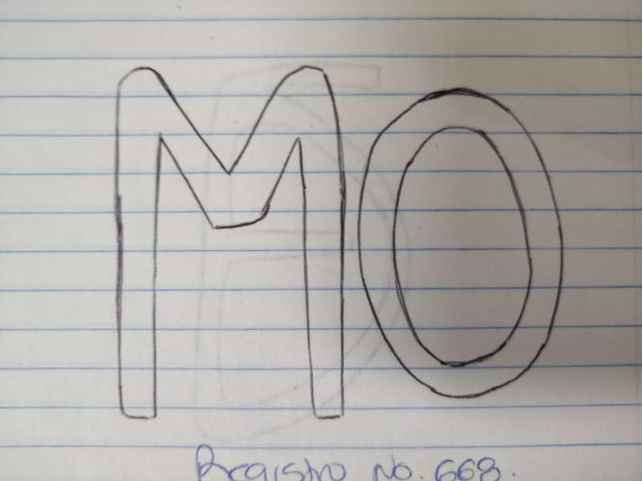 MO
Registro No. 668.